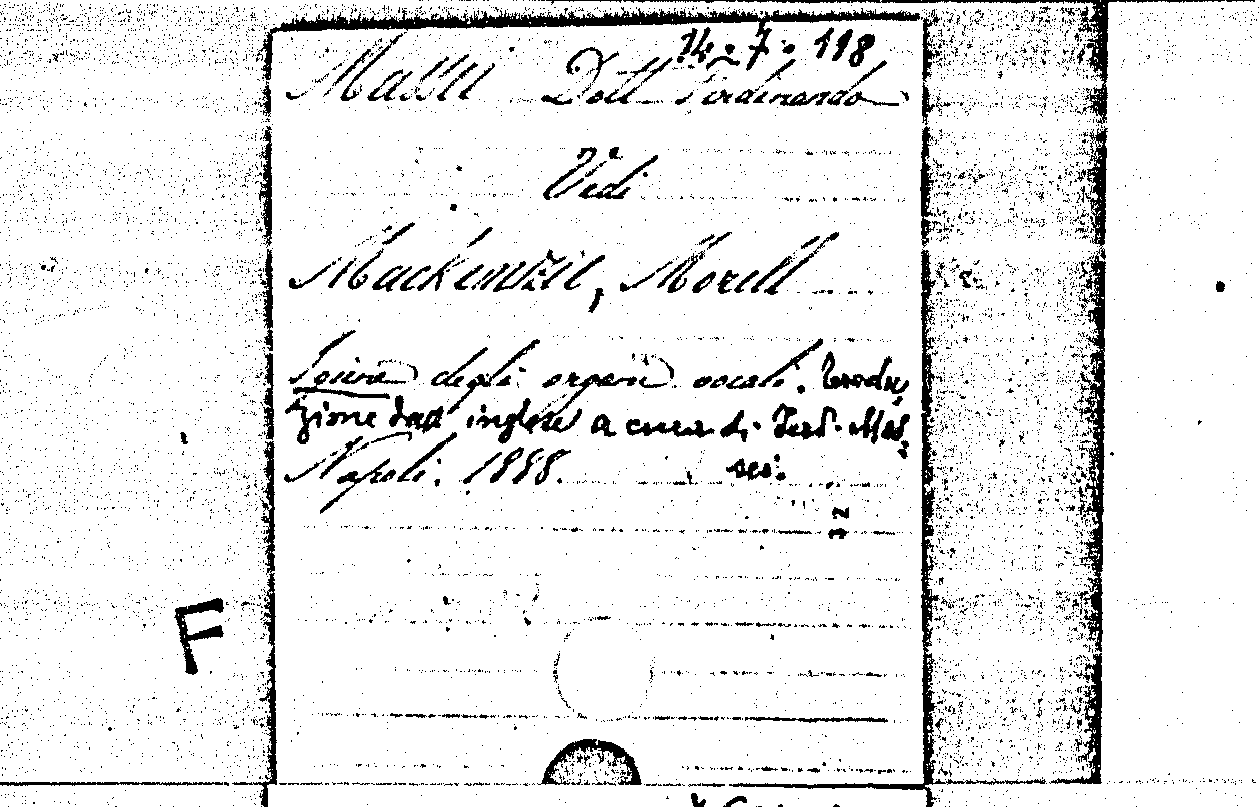 14-7-118
Massei Dott Ferdinando
Vedi
Mackenzie, Morell
Igiene degli organi vocali. Tradu-
zione dall' inglese a cura di Ferd. Mas-
sei.
Napoli. 1888.
32
F